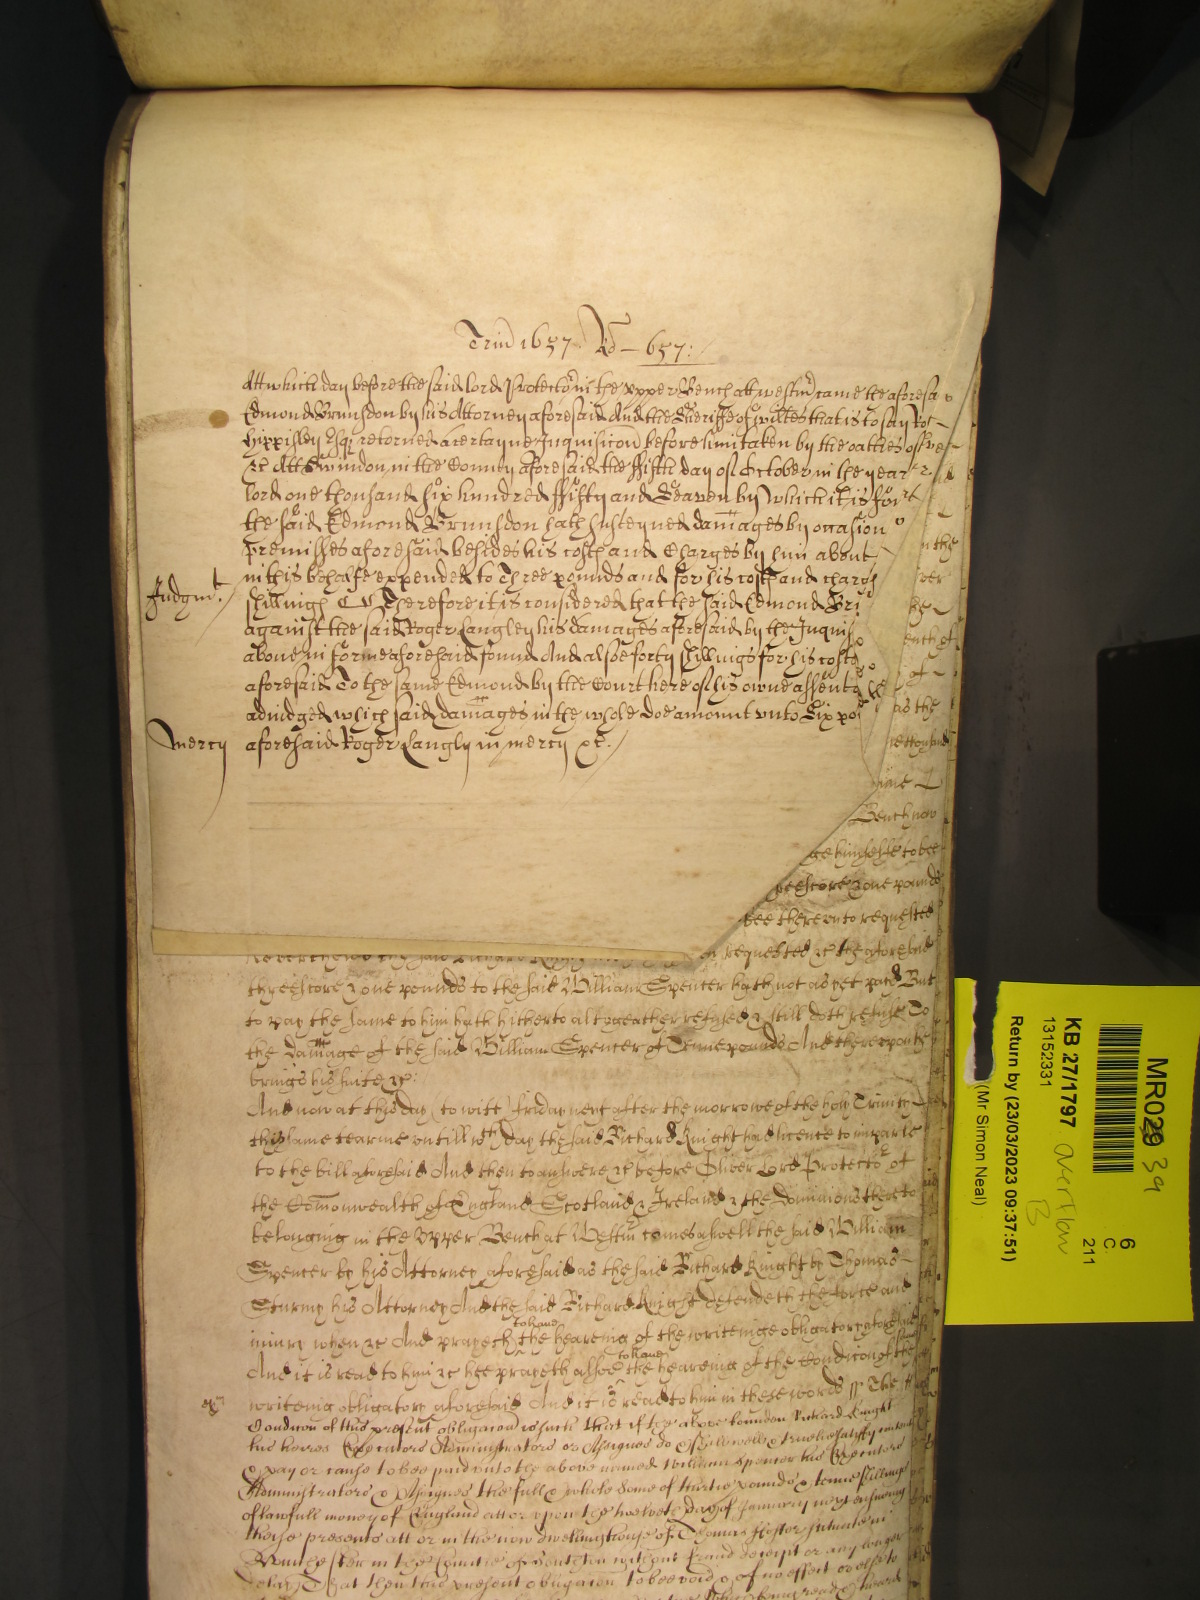 Trin 1657 Ro 657:
Att which day before the said Lord Protector in the Upper Bench att Westm came the aforesa
Edmond Brunsdon by his Attorney aforesaid And the Sheriffe of Wiltes that is to say
Hippisley Esqr retorned a certayne Inquisicon before him taken by the oathes of
&c Att Swindon in the County aforesaid the ffifth day of October in the year
lord one thousand six hundred ffifty and Seaven by which it is
the said Edmond Brunsdon hath susteyned damages by occasion
premisses aforesaid besides his costs and Charges by him about
in this behalfe expended to Three pounds and for his costs and charg
Judgmt. shillings Therefore it is considered that the said Edmond Br
against the said Roger Langley his damages aforesaid by the Inquis
above in forme aforesaid found And alsoe forty shillings for his costs
aforesaid To the same Edmond by the Court here of his owne assent
adiudged which said damages in the whole doe amount unto Six po
Mercy aforesaid Roger Langly in mercy &c.
in the
enth of
of
as the
Bench now
himselfe to bee
eescore & one pounds
bee thereunto requested
requested &c the aforesaid
threescore & one pounds to the said William Spencer hath not as yet payd But
to pay the same to him hath hitherto altogeather refused & still doth refuse To
the damage of the said William Spencer of Tenne pounds And thereupon he
brings his suite &c:
And now at this day to witt fryday next after the morrowe of the holy Trinity
this same tearme untill wch day the said Richard Knight had licence to imparle
to the bill aforesaid And then to answere &c before Oliver Lord Protector of
the Comonwealth of England Scotland & Ireland & the dominions thereto
belonging in the Upper Bench at Westm comes aswell the said William
Spencer by his Attorney aforesaid as the said Richard Knight by Thomas
Sturmy his Attorney And the said Richard Knight defendeth the force and
iniury when &c And prayeth to have the heareing of the writeinge obligatory aforesaid
And it is read to him &c hee prayeth alsoe to have the heareing of the Condicon of the
writeing obligatory aforesaid And it is read to him in these words ss The
Condicon of this present obligacon is such that if the above bounden Richard Knight
his heires Executors Administrators or Assignes do well & truelie satisfy
& pay or cause to bee paid unto the above named William Spencer his Executors
Administrators or Assignes the full & whole some of thirtie pounds & tenne shillings
of lawfull money of England att or upon the twelveth day of January next ensueing
these presents att or in the now dwelling house of Thomas situate in
in the Countie of without fraud deceipt or any longer
delay That then this present obligacon to bee void & of no effect or else to
MR029 39
6
C
211
KB 27/1797 overflow
B
13152331
Return by (23/03/2023 09:37:51)
(Mr Simon Neal)